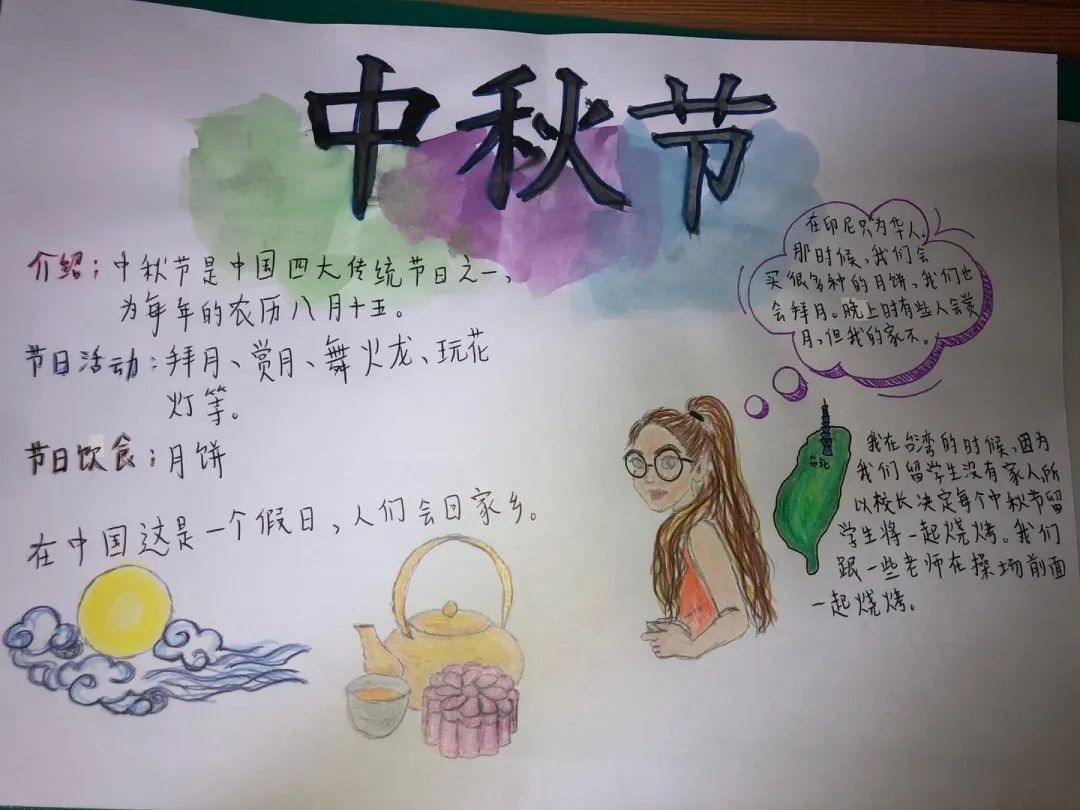 中秋节
介绍：中秋节是中国四大传统节日之一，
为每年的农历八月十五。
节日活动：拜月、赏月、舞火龙、玩花
灯等。
节日饮食：月饼
在中国这是一个假日，人们会回家乡。
在印尼只为华人，
那时候，我们会
买很多种的月饼，我们也
会拜月。晚上时有些人会赏
月，但我的家不。
台北
我在台湾的时候，因为
我们留学生没有家人，所
以校长决定每个中秋节留
学生将一起烧烤。我们
跟一些老师在操场前面
一起烧烤。